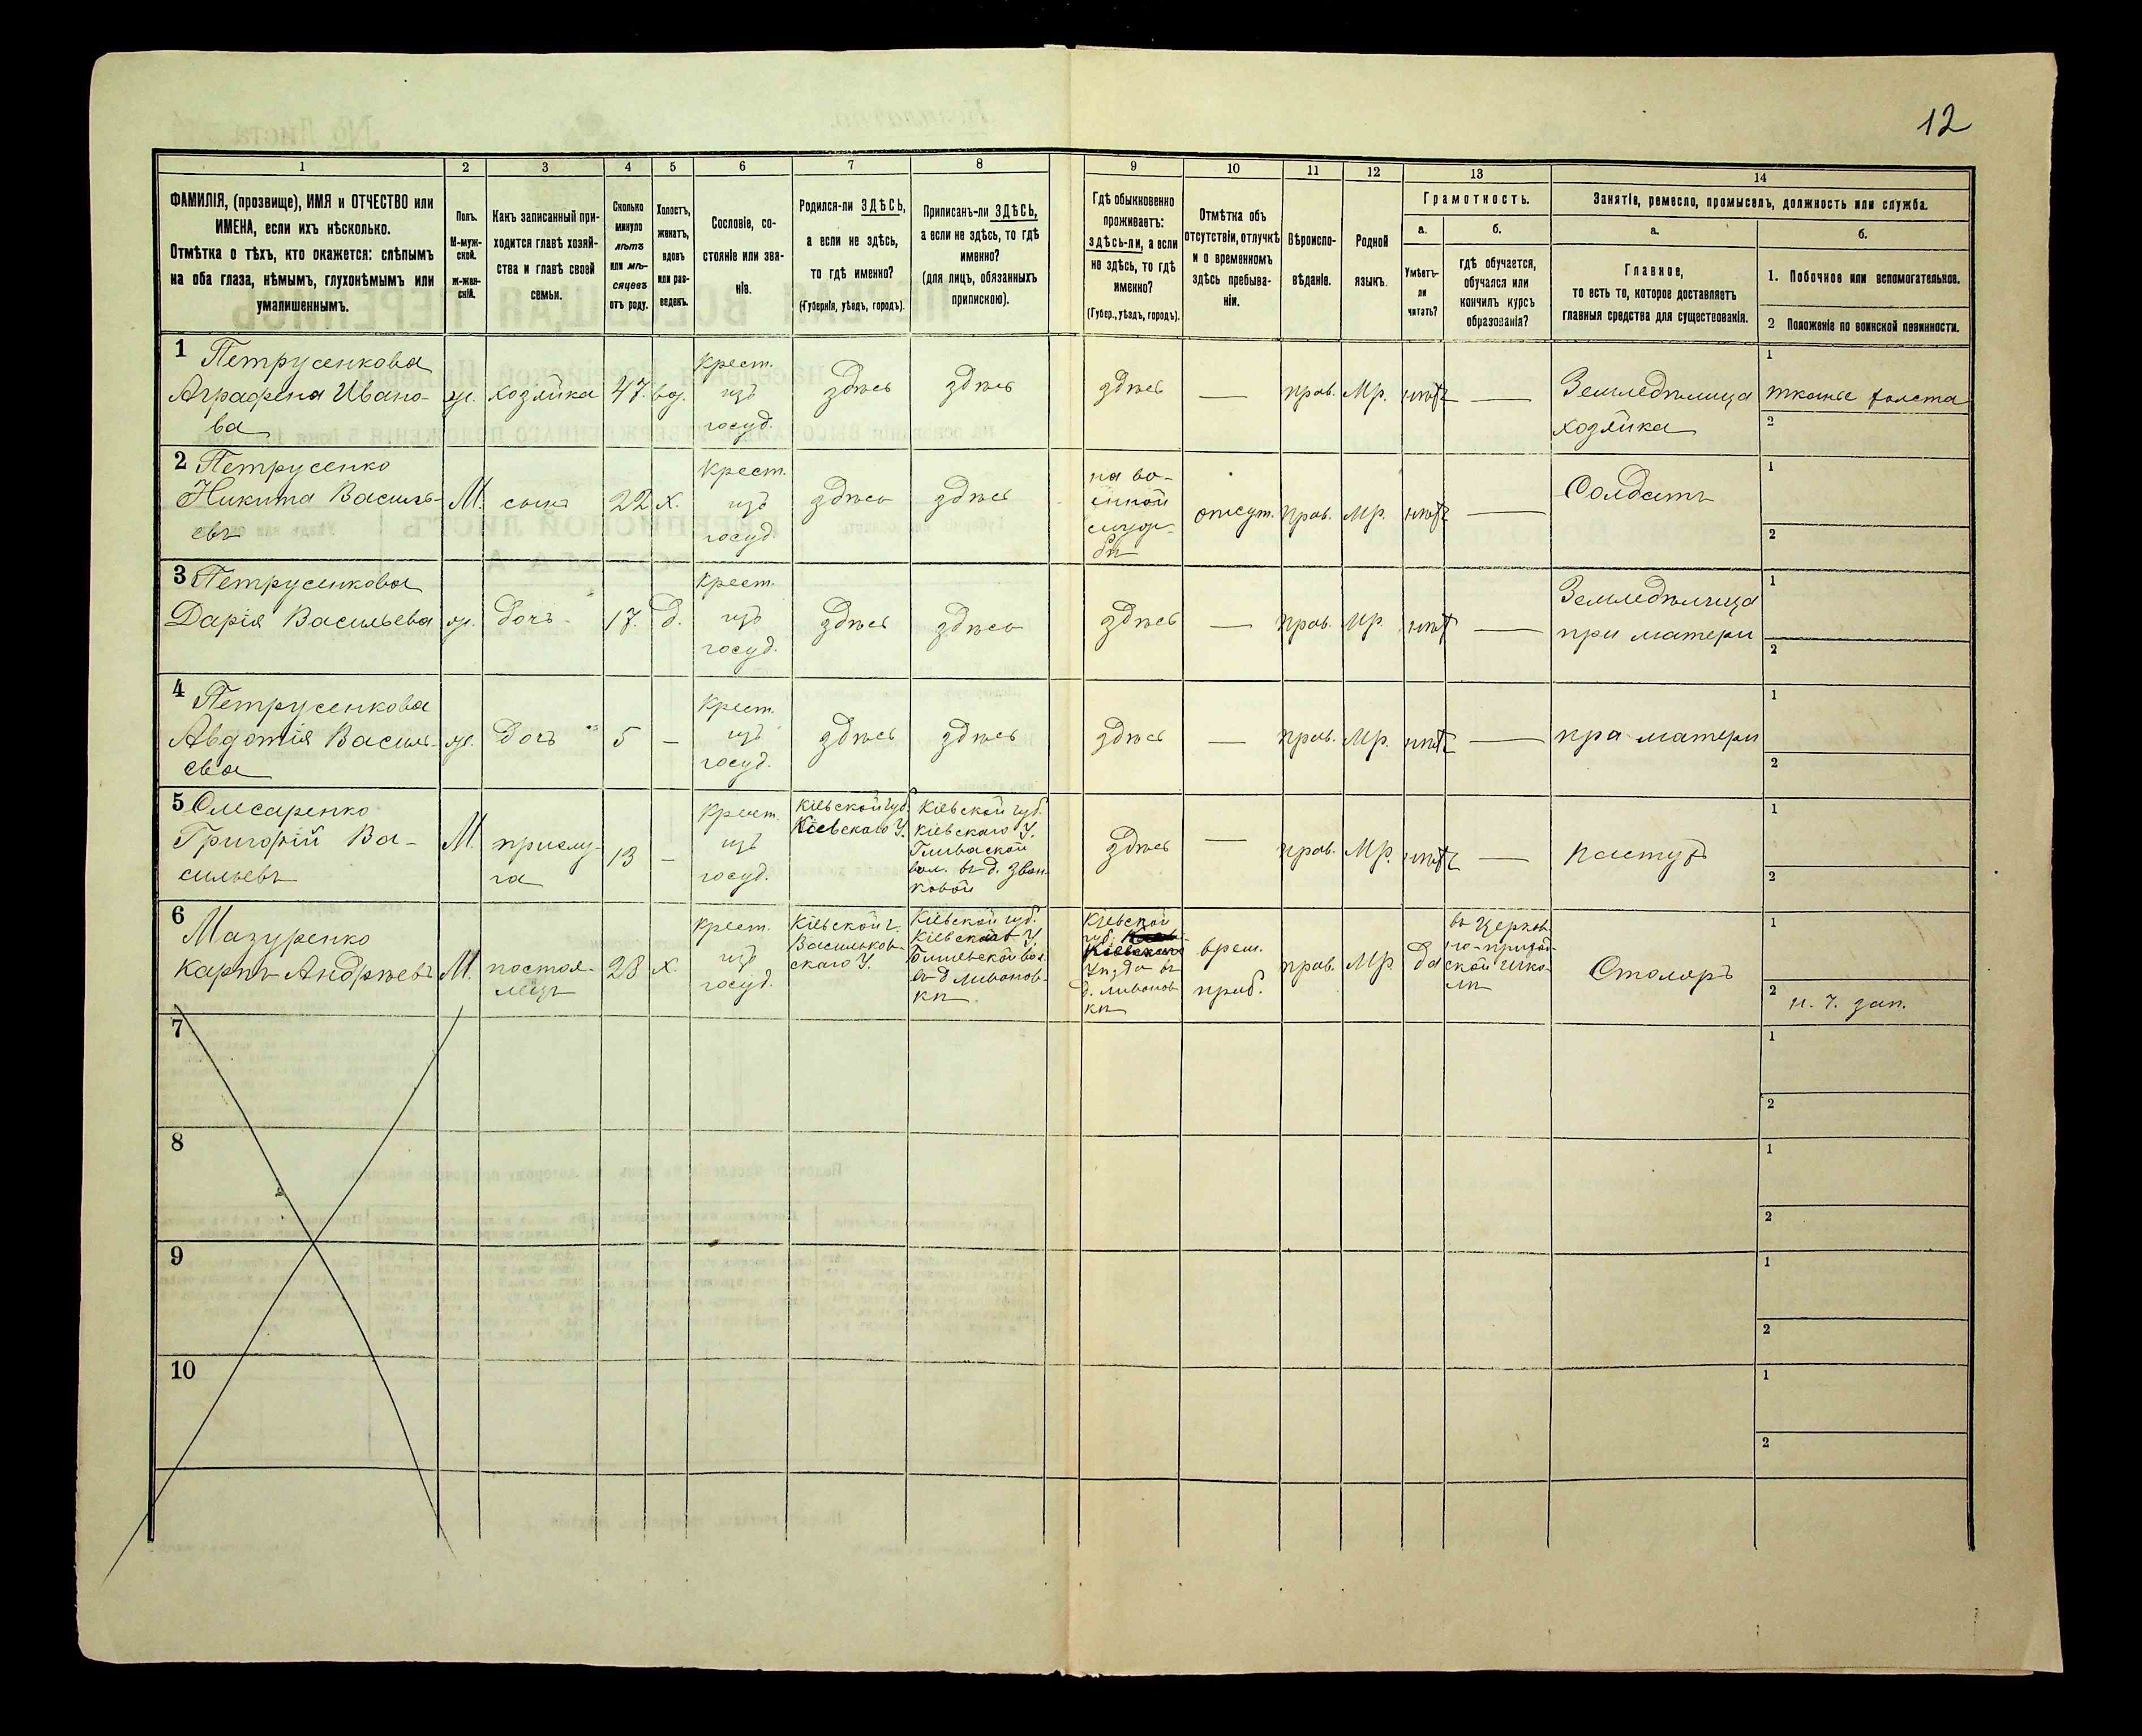 12
1 2 3 4 5 6 7 8 9 10 11 12 13 14
ФАМИЛІЯ, (прозвище), ИМЯ и ОТЧЕСТВО или
ИМЕНА, если ихъ нѣсколько.
Отмѣтка о тѣхъ, кто окажется: слѣпымъ
на оба глаза, нѣмымъ, глухонѣмымъ или
умалишеннымъ.
Полъ.
М-муж-
ской.
ж-жен-
скій.
Какъ записанный при-
ходится главѣ хозяй-
ства и главѣ своей
семьи.
Сколько
минуло
лѣтъ
или мѣ-
сяцевъ
отъ роду.
Холостъ,
женатъ,
вдовъ
или раз-
веденъ.
Сословіе, со-
стояніе или зва-
ніе.
Родился-ли ЗДѢСЬ,
а если не здѣсь,
то гдѣ именно?
(Губернія, уѣздъ, городъ).
Приписанъ-ли ЗДѢСЬ,
а если не здѣсь, то гдѣ
именно?
(для лицъ, обязанныхъ
припискою).
Гдѣ обыкновенно
проживаетъ:
здѣсь-ли, а если
не здѣсь, то гдѣ
именно?
(Губер., уѣздъ, городъ).
Отмѣтка объ
отсутствіи, отлучкѣ
и о временномъ
здѣсь пребыва-
ніи.
Вѣроиспо-
вѣданіе.
Родной
языкъ.
Грамотность.
а.
Умѣетъ-
ли
читать?
б.
гдѣ обучается,
обучался или
кончилъ курсъ
образованія?
Занятіе, ремесло, промыселъ, должность или служба.
а.
Главное,
то есть то, которое доставляетъ
главныя средства для существованія.
б.
1. Побочное или вспомогательное.
2 Положеніе по воинской повинности.
1 Петрусенкова
Аграфена Ивано-
ва
ж.
хозяйка
47.
вд.
Крест.
изъ
госуд.
здѣсь
здѣсь
здѣсь
—
прав.
Мр.
нѣтъ
—
Земледѣлица
хозяйка
1
тканье холста
2
2 Петрусенко
Никита Василь-
евъ
М.
сынъ
22
х.
Крест.
изъ
госуд.
здѣсь
здѣсь
на во-
енной
служ-
бѣ
отсут.
прав.
Мр.
нѣтъ
—
Солдатъ
1
2
3 Петрусенкова
Дарія Васильева
ж.
дочь
17.
д.
Крест.
изъ
госуд.
здѣсь
здѣсь
здѣсь
—
прав.
Мр.
нѣтъ
—
Земледѣлица
при матери
1
2
4 Петрусенкова
Авдотія Василь-
ева
ж.
дочь
5
—
Крест.
изъ
госуд.
здѣсь
здѣсь
здѣсь
—
прав.
Мр.
нѣтъ
—
при матери
1
2
5 Слесаренко
Григорій Ва-
сильевъ
М.
прислу-
га
13
—
Крест.
изъ
госуд.
Кіевской губ.
Кіевскаго У.
Кіевской губ.
Кіевскаго У.
вол. въ д. Звон-
ковой
здѣсь
—
прав.
Мр.
нѣтъ
—
Пастухъ
1
2
6 Мазуренко
Карпъ Андреевъ
М.
постоя-
лецъ
28
х.
Крест.
изъ
госуд.
Кіевской г.
Васильков-
скаго У.
Кіевской губ.
Кіевскаго У.
вол.
въ д Ливонов-
кѣ
Кіевской
губ.
Кіевскаго
Уѣзда въ
д. Ливонов
кѣ
врем.
преб.
прав.
Мр.
да
въ Церков
но-приход-
ской шко-
лѣ
Столяръ
1
2
н. ч. зап.
7
1
2
8
1
2
9
1
2
10
1
2